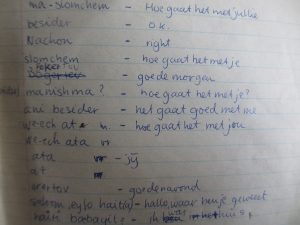 ma-slomchem - Hoe gaat het met jullie
besider - o.k.
Nachon - right
slomchem - hoe gaat het met je
- goede morgen
manishma? - hoe gaat het met je?
ani besider - het gaat goed met me
we-ech at - hoe gaat het met jou
we-ech ata
ata - jij
at
erev tov - goedenavond
- hallo, waar ben je geweest
haiti babayit = ik was